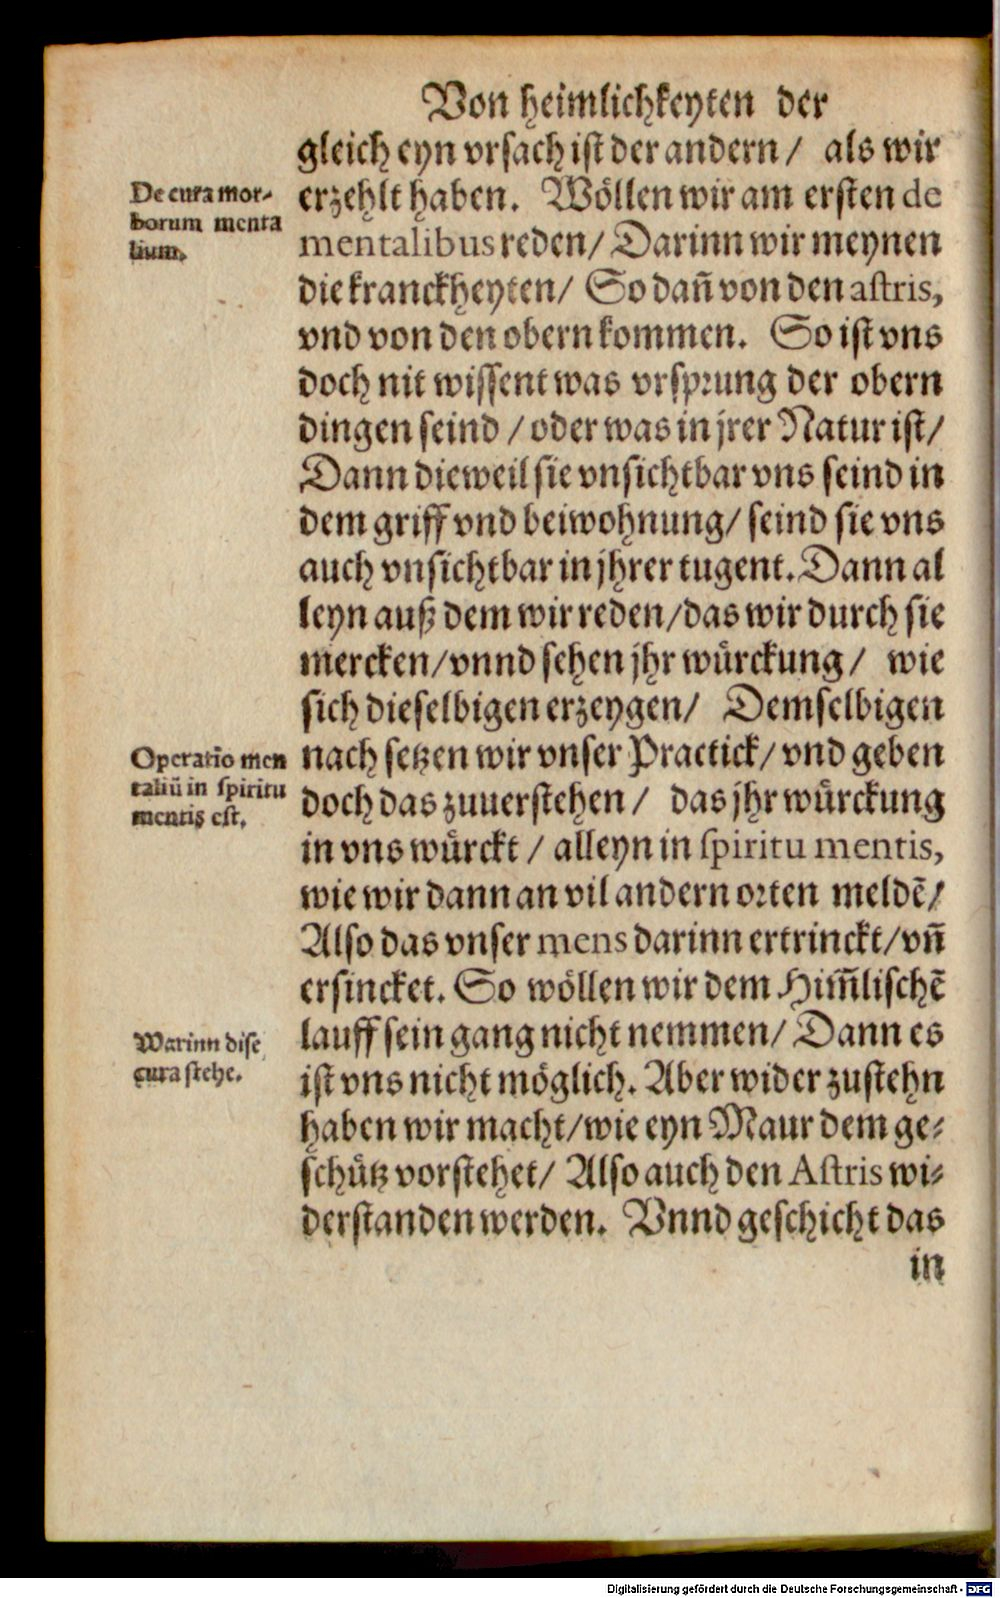 Von heimlichkeyten der
gleich eyn vrsach ist der andern / als wir
De cura mor-
borum menta
lium.
erzehlt haben. Wöllen wir am ersten de
mentalibus reden / Darinn wir meynen
die kranckheyten / So dañ von den astris,
vnd von den obern kommen. So ist vns
doch nit wissent was vrsprung der obern
dingen seind / oder was in jrer Natur ist /
Dann dieweil sie vnsichtbar vns seind in
dem griff vnd beiwohnung / seind sie vns
auch vnsichtbar in jhrer tugent. Dann al
leyn auß dem wir reden / das wir durch sie
mercken / vnnd sehen jhr würckung / wie
sich dieselbigen erzeygen / Demselbigen
Operatio men
taliũ in spiritu
mentis est.
nach setzen wir vnser Practick / vnd geben
doch das zuuerstehen / das jhr würckung
in vns würckt / alleyn in spiritu mentis,
wie wir dann an vil andern orten meldẽ /
Also das vnser mens darinn ertrinckt / vñ
ersincket. So wöllen wir dem Him̃lischẽ
Warinn dise
cura stehe.
lauff sein gang nicht nemmen / Dann es
ist vns nicht möglich. Aber wider zustehn
haben wir macht / wie eyn Maur dem ge-
schütz vorstehet / Also auch den Astris wi-
derstanden werden. Vnnd geschicht das
in
Digitalisierung gefördert durch die Deutsche Forschungsgemeinschaft - DFG